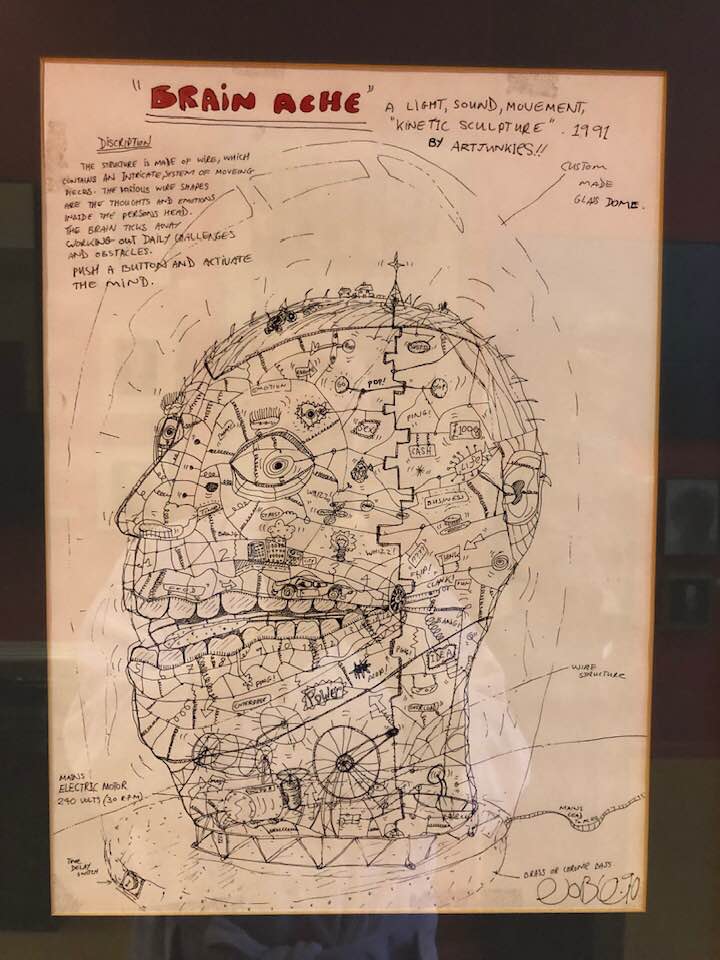 "BRAIN ACHE"
A LIGHT, SOUND, MOVEMENT,
"KINETIC SCULPTURE". 1991
BY ARTJUNKIES!!
DISCRIPTION
THE STRUCTURE IS MADE OF WIRE, WHICH
CONTAINS AN INTRICATE SYSTEM OF MOVEING
PIECES. THE VARIOUS WIRE SHAPES
ARE THE THOUGHTS AND EMOTIONS
INSIDE THE PERSONS HEAD.
THE BRAIN TICKS AWAY
WORKING OUT DAILY CHALLENGES
AND OBSTACLES.
PUSH A BUTTON AND ACTIVATE
THE MIND.
CUSTOM
MADE
GLAS DOME.
EMOTION
GO
POP!
SEX
PING!
CASH
LIFE
BUSINESS
STRESS
WHIZZ!
WHIZZ!
THINK
FLIP!
CLANK!
FUN
BANG!
IDEA
PING!
PING!
POWER
WIRE
STRUCTURE
MAINS
ELECTRIC MOTOR
240 VOLTS (30 RPM)
MAINS
TIME
DELAY
SWITCH
BRASS OR CHROME BASE.